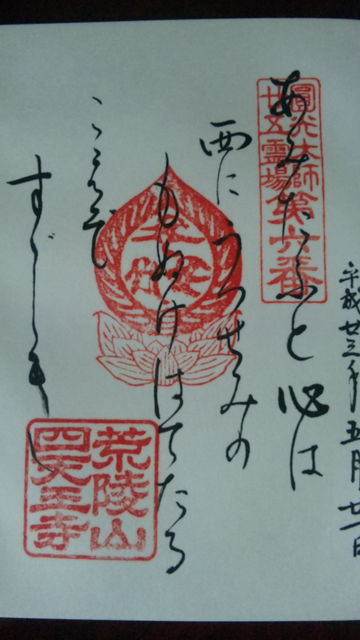 平成廿三年五月廿一日
圓光大師
廿五霊場
第六番
あみたふと心は
西にうつせみの
もぬけはてたる
こゑぞ
すゞしき
荒陵山
四天王寺